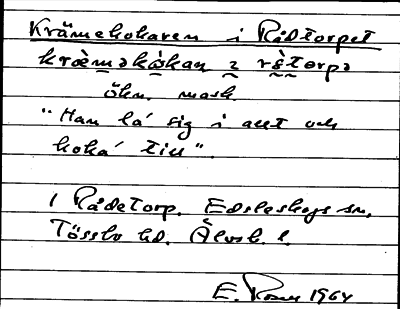 Krämekokaren i Rådtorpet
kræ̀məkòkan i rètorpə
ökn. mask.
"Han la' sig i allt och
koka' till".
I Rådetorp. Edsleskogs sn,
Tössbo hd. Älvsb. l.
E. 1964